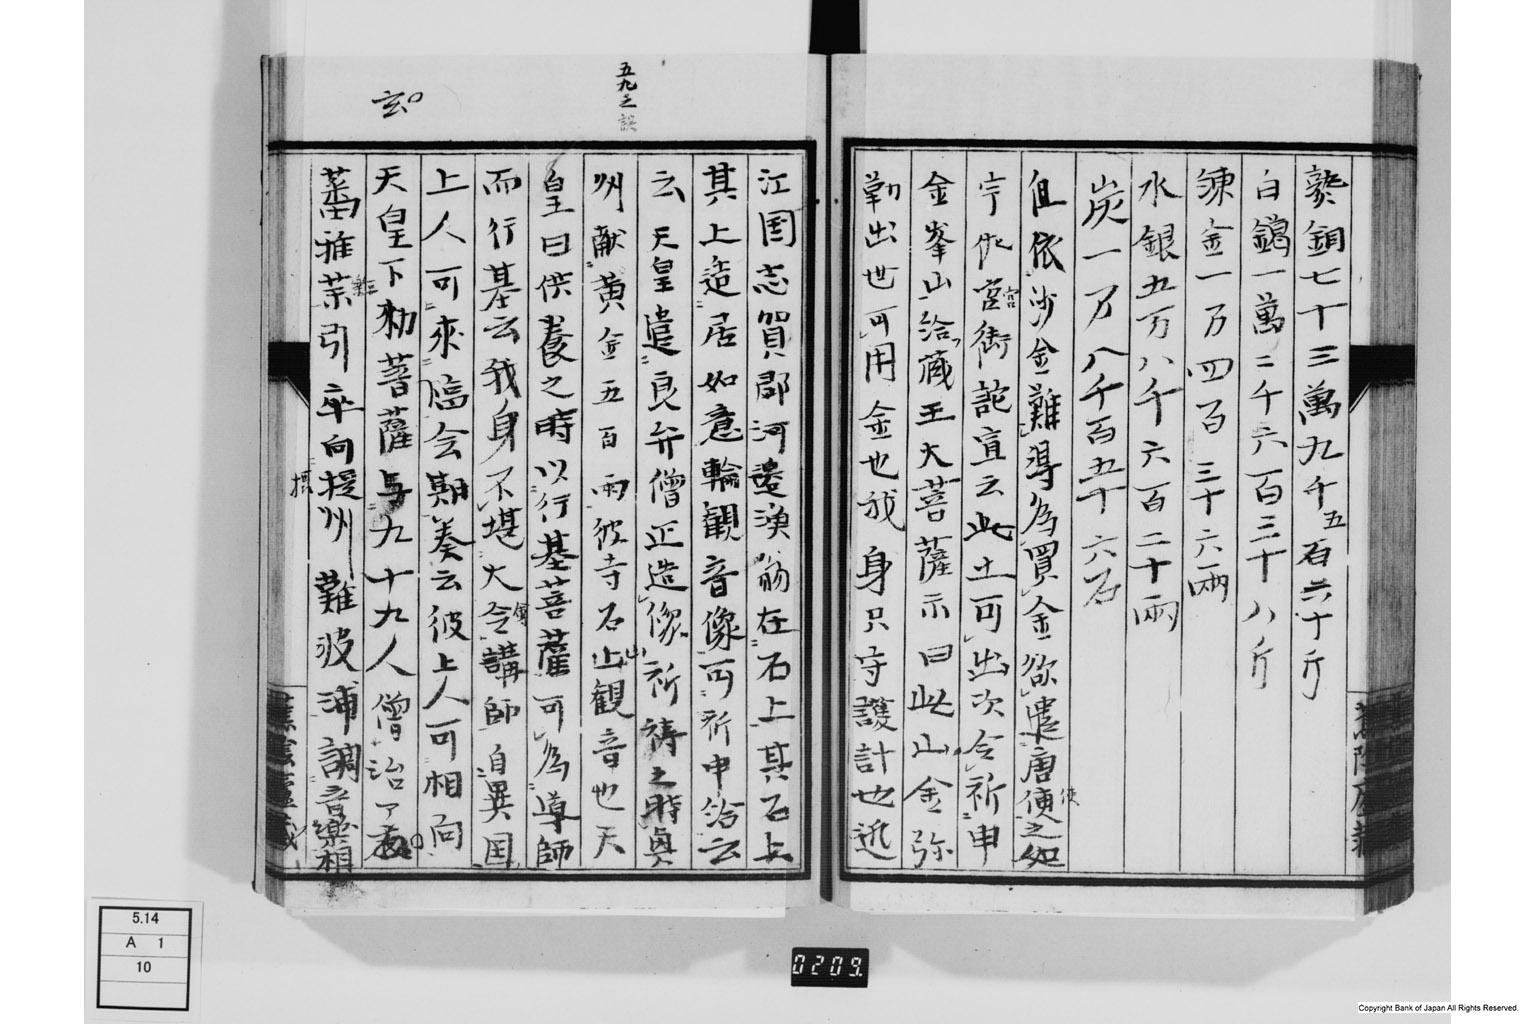 熟銅七十三萬九千五百六十斤
白鑞一萬二千六百三十八斤
錬金一万四百三十六両
水銀五万八千六百二十両
炭一万八千百五十六石
但依沙金難得為買金欲遣唐使之如
宇佐宮街詫宣云此土可出次令祈申
金峯山給蔵王大菩薩示曰此山金弥
勒出世可用金也我身只守護計也近
五九之誤
江国志賀郡河邊漁翁在石上其石上
其上造居如意輪観音像可祈申給云
云天皇遣良弁僧正造像祈祷之時奥
州献黄金五百両彼寺石山観音也天
皇曰供養之時以行基菩薩可為導師
而行基云我身不堪大会講師自異国
上人可來臨会期奏云彼上人可相向
天皇下勅菩薩与九十九人僧治了
玄
蕃雅楽引卒向摂州難波浦調音樂相
摂
5.14
A 1
10
0209.
Copyright Bank of Japan All Rights Reserved.